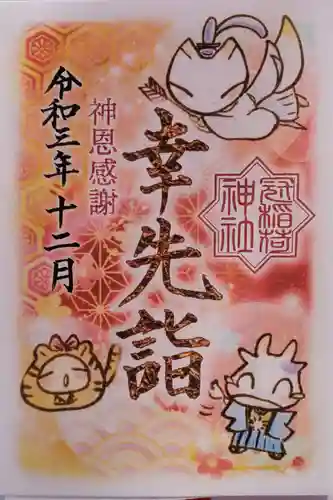 幸先詣
神恩感謝
令和三年十二月
冠稲荷
神社